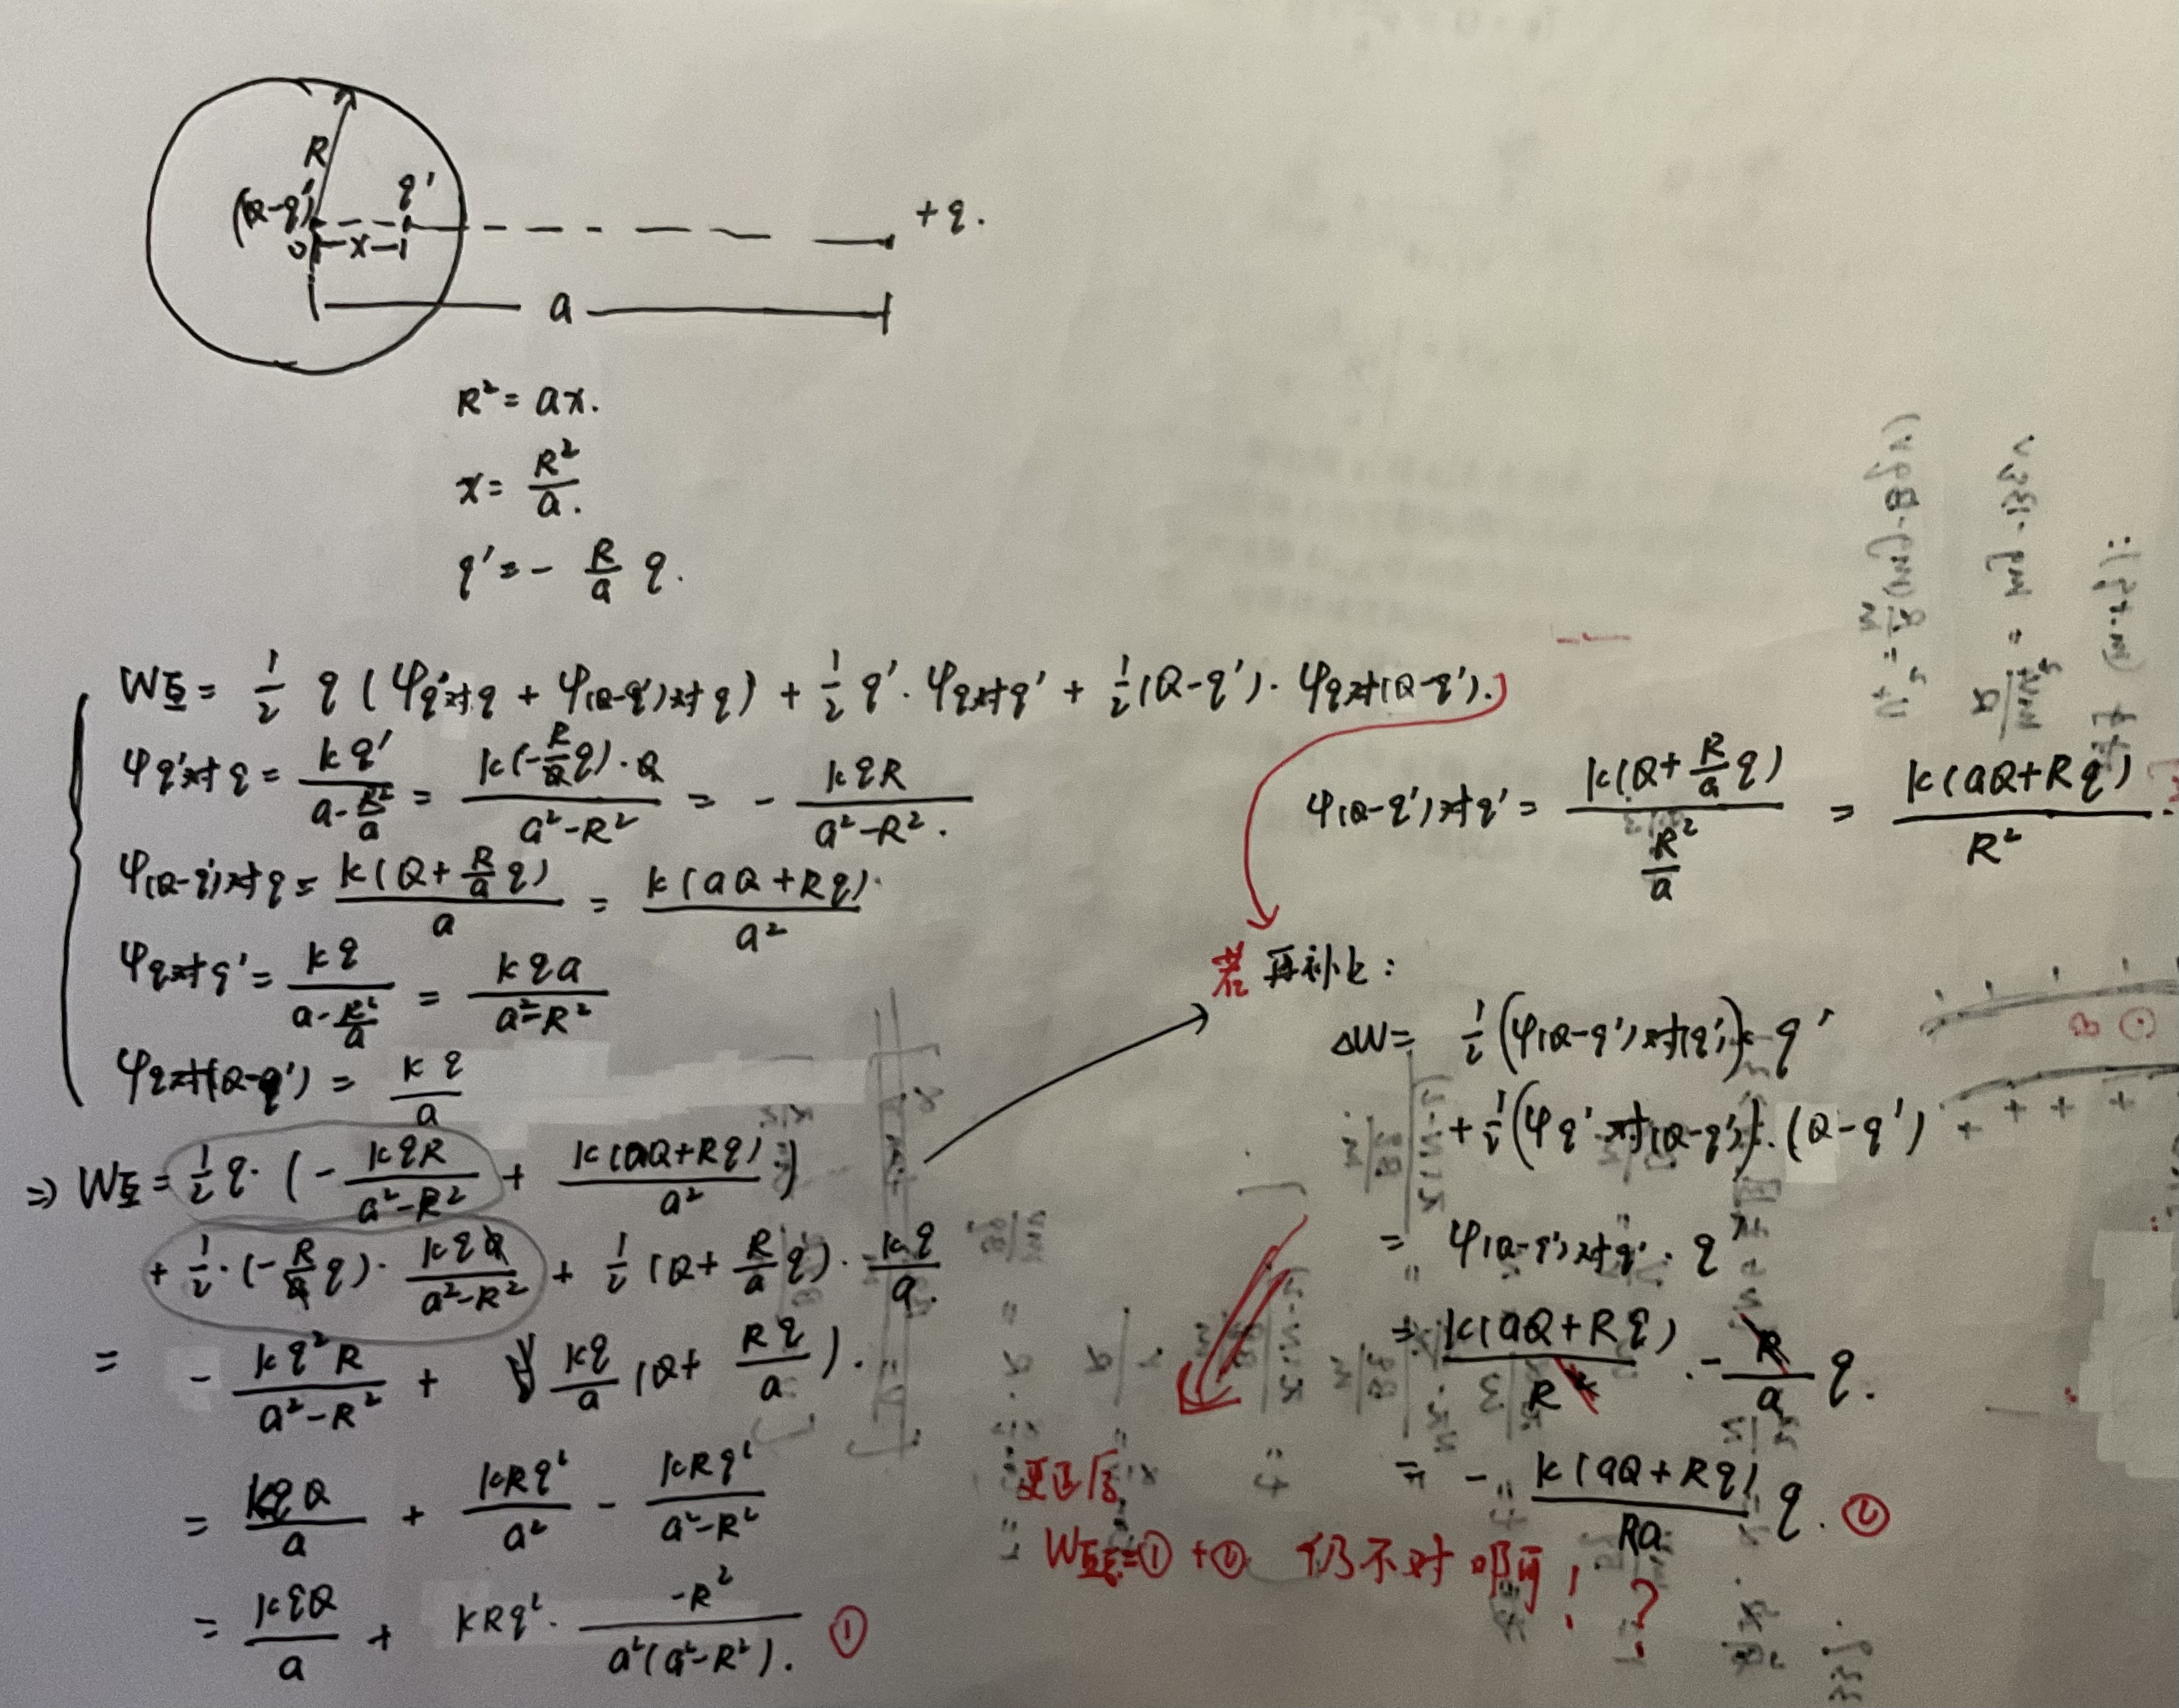 R
(Q-q')
q'
+q.
0
x
a
R² = ax.
x = R²/a.
q' = - R/a q.
W互 = 1/2 q (φq'对q + φ(Q-q')对q) + 1/2 q'·φq对q' + 1/2 (Q-q')·φq对(Q-q').
φq'对q = kq'/(a - R²/a) = k(-R/a q)·a/(a²-R²) = - kqR/(a²-R²).
φ(Q-q')对q = k(Q + R/a q)/a = k(aQ+Rq)/a²
φq对q' = kq/(a - R²/a) = kqa/(a²-R²)
φq对(Q-q') = kq/a
⇒ W互 = 1/2 q·(- kqR/(a²-R²) + k(aQ+Rq)/a²)
+ 1/2·(-R/a q)·kqa/(a²-R²) + 1/2 (Q + R/a q)·kq/a.
= - kq²R/(a²-R²) + kq/a (Q + Rq/a).
= kqQ/a + kRq²/a² - kRq²/(a²-R²)
= kqQ/a + kRq²·-R²/(a²(a²-R²)). ①
φ(Q-q')对q' = k(Q + R/a q)/(R²/a) = k(aQ+Rq)/R²
若再补上:
ΔW = 1/2 (φ(Q-q')对(q'))·q'
+ 1/2 (φq'对(Q-q'))·(Q-q')
= φ(Q-q')对q'·q'
= k(aQ+Rq)/R²·-R/a q.
= - k(aQ+Rq)/Ra q. ②
W互=①+② 仍不对啊! ?